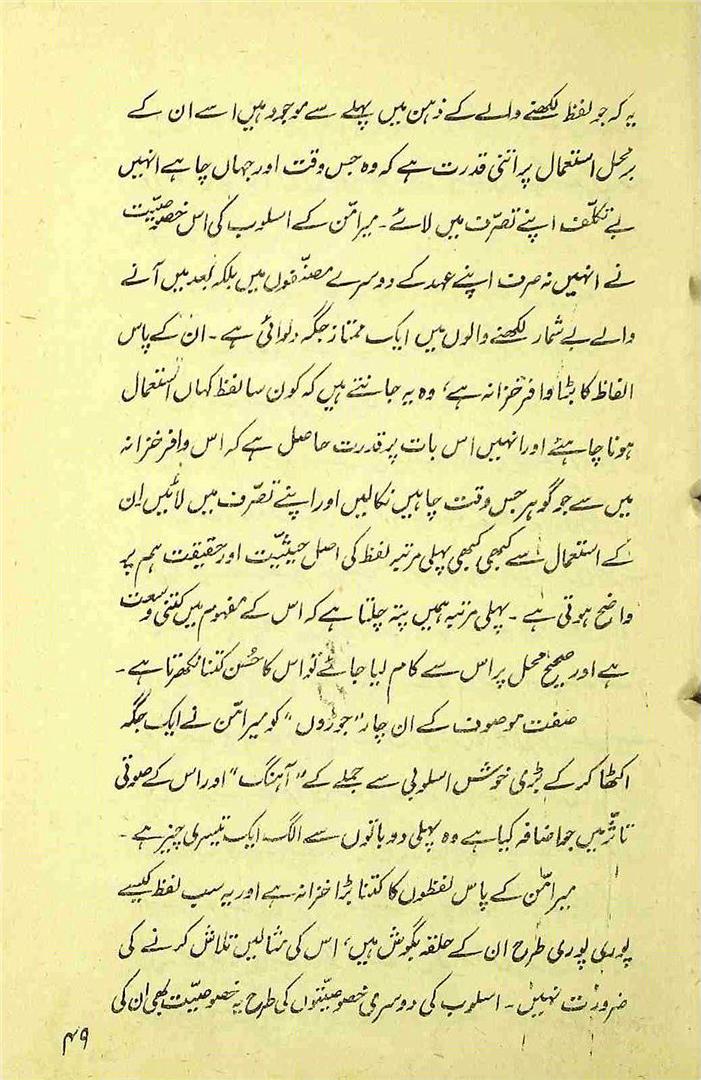 یہ کہ جو لفظ لکھنے والے کے ذہن میں پہلے سے موجود ہیں اسے ان کے
بر محل استعمال پر اتنی قدرت ہے کہ وہ جس وقت اور جہاں چاہے انہیں
بے تکلّف اپنے تصرّف میں لائے۔ میرامّن کے اسلوب کی اس خصوصیّت
نے انہیں نہ صرف اپنے عہد کے دوسرے مصنّفوں میں بلکہ بعد میں آنے
والے بے شمار لکھنے والوں میں ایک ممتاز جگہ دلوائی ہے۔ ان کے پاس
الفاظ کا بڑا وافر خزانہ ہے، وہ یہ جانتے ہیں کہ کون سا لفظ کہاں استعمال
ہونا چاہئے اور انہیں اس بات پر قدرت حاصل ہے کہ اس وافر خزانہ
میں سے جو گوہر جس وقت چاہیں نکالیں اور اپنے تصرّف میں لائیں اِن
کے استعمال سے کبھی کبھی پہلی مرتبہ لفظ کی اصل حیثیّت اور حقیقت ہم پر
واضح ہوتی ہے۔ پہلی مرتبہ ہمیں پتہ چلتا ہے کہ اس کے مفہوم میں کتنی وسعت
ہے اور صحیح محل پر اس سے کام لیا جائے تو اس کا حُسن کتنا نکھرتا ہے۔
صفت موصوف کے ان چار "جوڑوں" کو میرامّن نے ایک جگہ
اکٹھا کر کے بڑی خوش اسلوبی سے جملے کے "آہنگ" اور اس کے صوتی
تاثّر میں جو اضافہ کیا ہے وہ پہلی دو باتوں سے الگ ایک تیسری چیز ہے۔
میرامّن کے پاس لفظوں کا کتنا بڑا خزانہ ہے اور یہ سب لفظ کیسے
پوری پوری طرح ان کے حلقہ بگوش ہیں، اس کی مثالیں تلاش کرنے کی
ضرورت نہیں۔ اسلوب کی دوسری خصوصیّتوں کی طرح یہ خصوصیّت بھی ان کی
۴۹